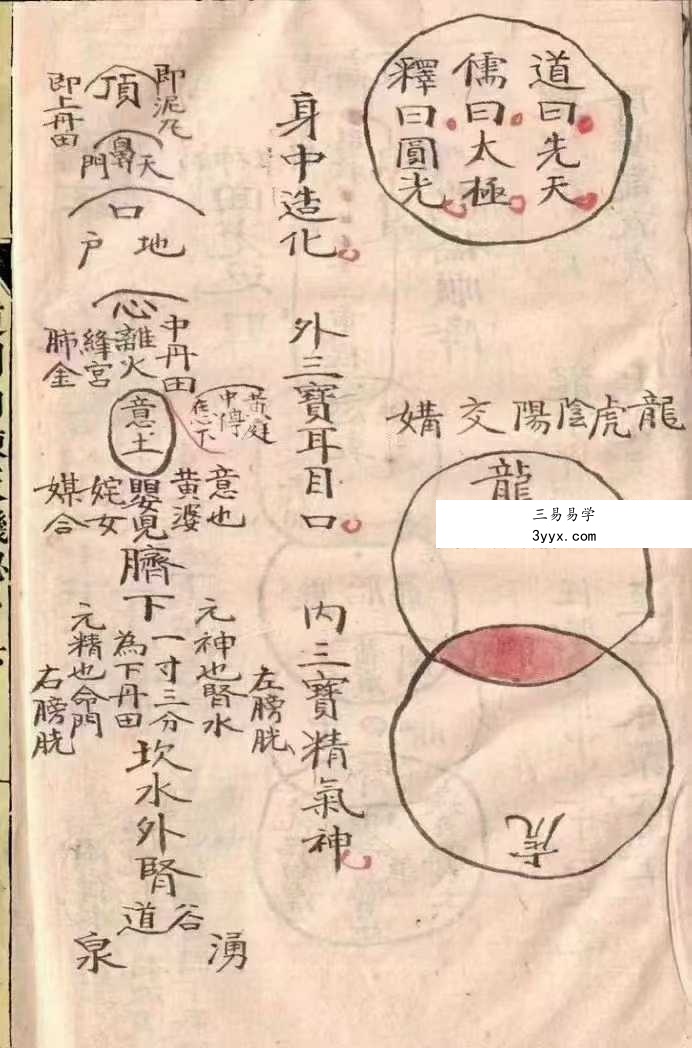 道曰先天
儒曰太極
釋曰圓光
龍虎陰陽交媾
龍
虎
三易易学
3yyx.com
身中造化
外三寶耳目口
內三寶精氣神
頂
即泥丸
即上丹田
鼻
天門
口
地戶
心
中丹田
離火
絳宮
肺金
意土
黃庭
中停
意也
黃婆
嬰兒
姹女
媒合
臍下一寸三分
為下丹田
元神也腎水
左膀胱
元精也命門
右膀胱
坎水外腎
谷道
湧泉